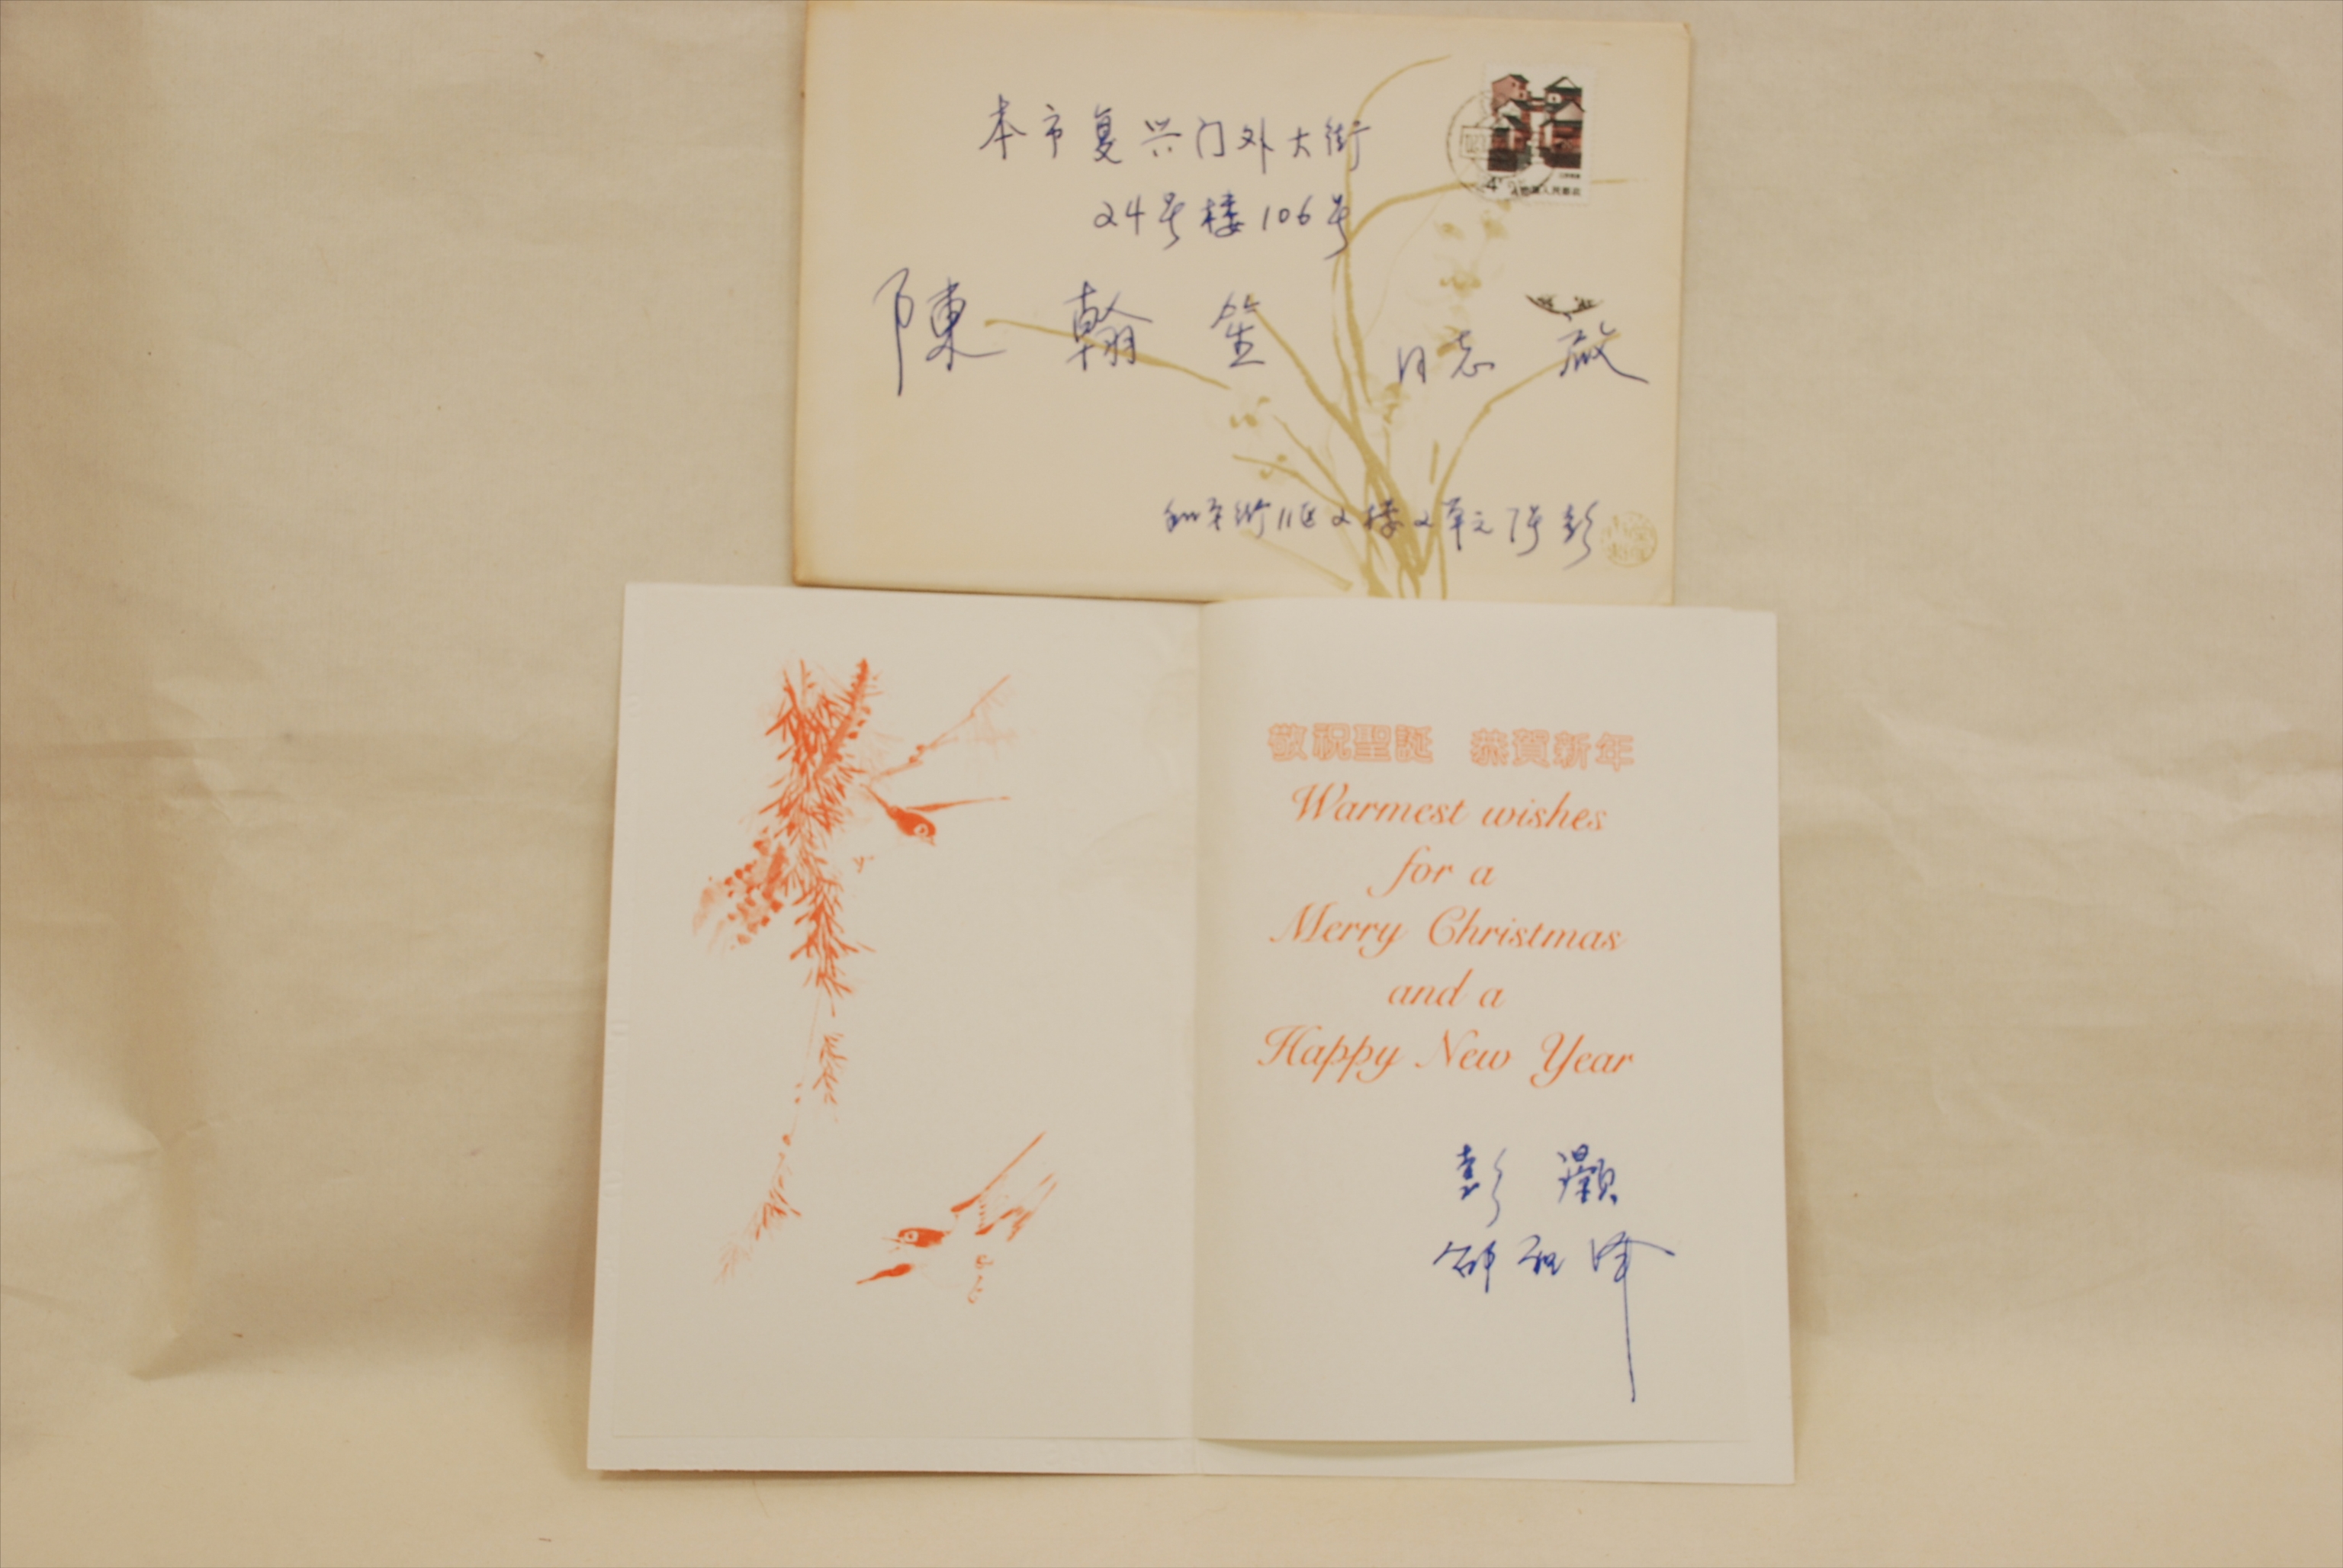 本市复兴门外大街
24号楼106号
陳翰笙 同志 啟
和平街11区2楼2单元 彭
敬祝聖誕 恭賀新年
Warmest wishes
for a
Merry Christmas
and a
Happy New Year
彭灝
邹祖